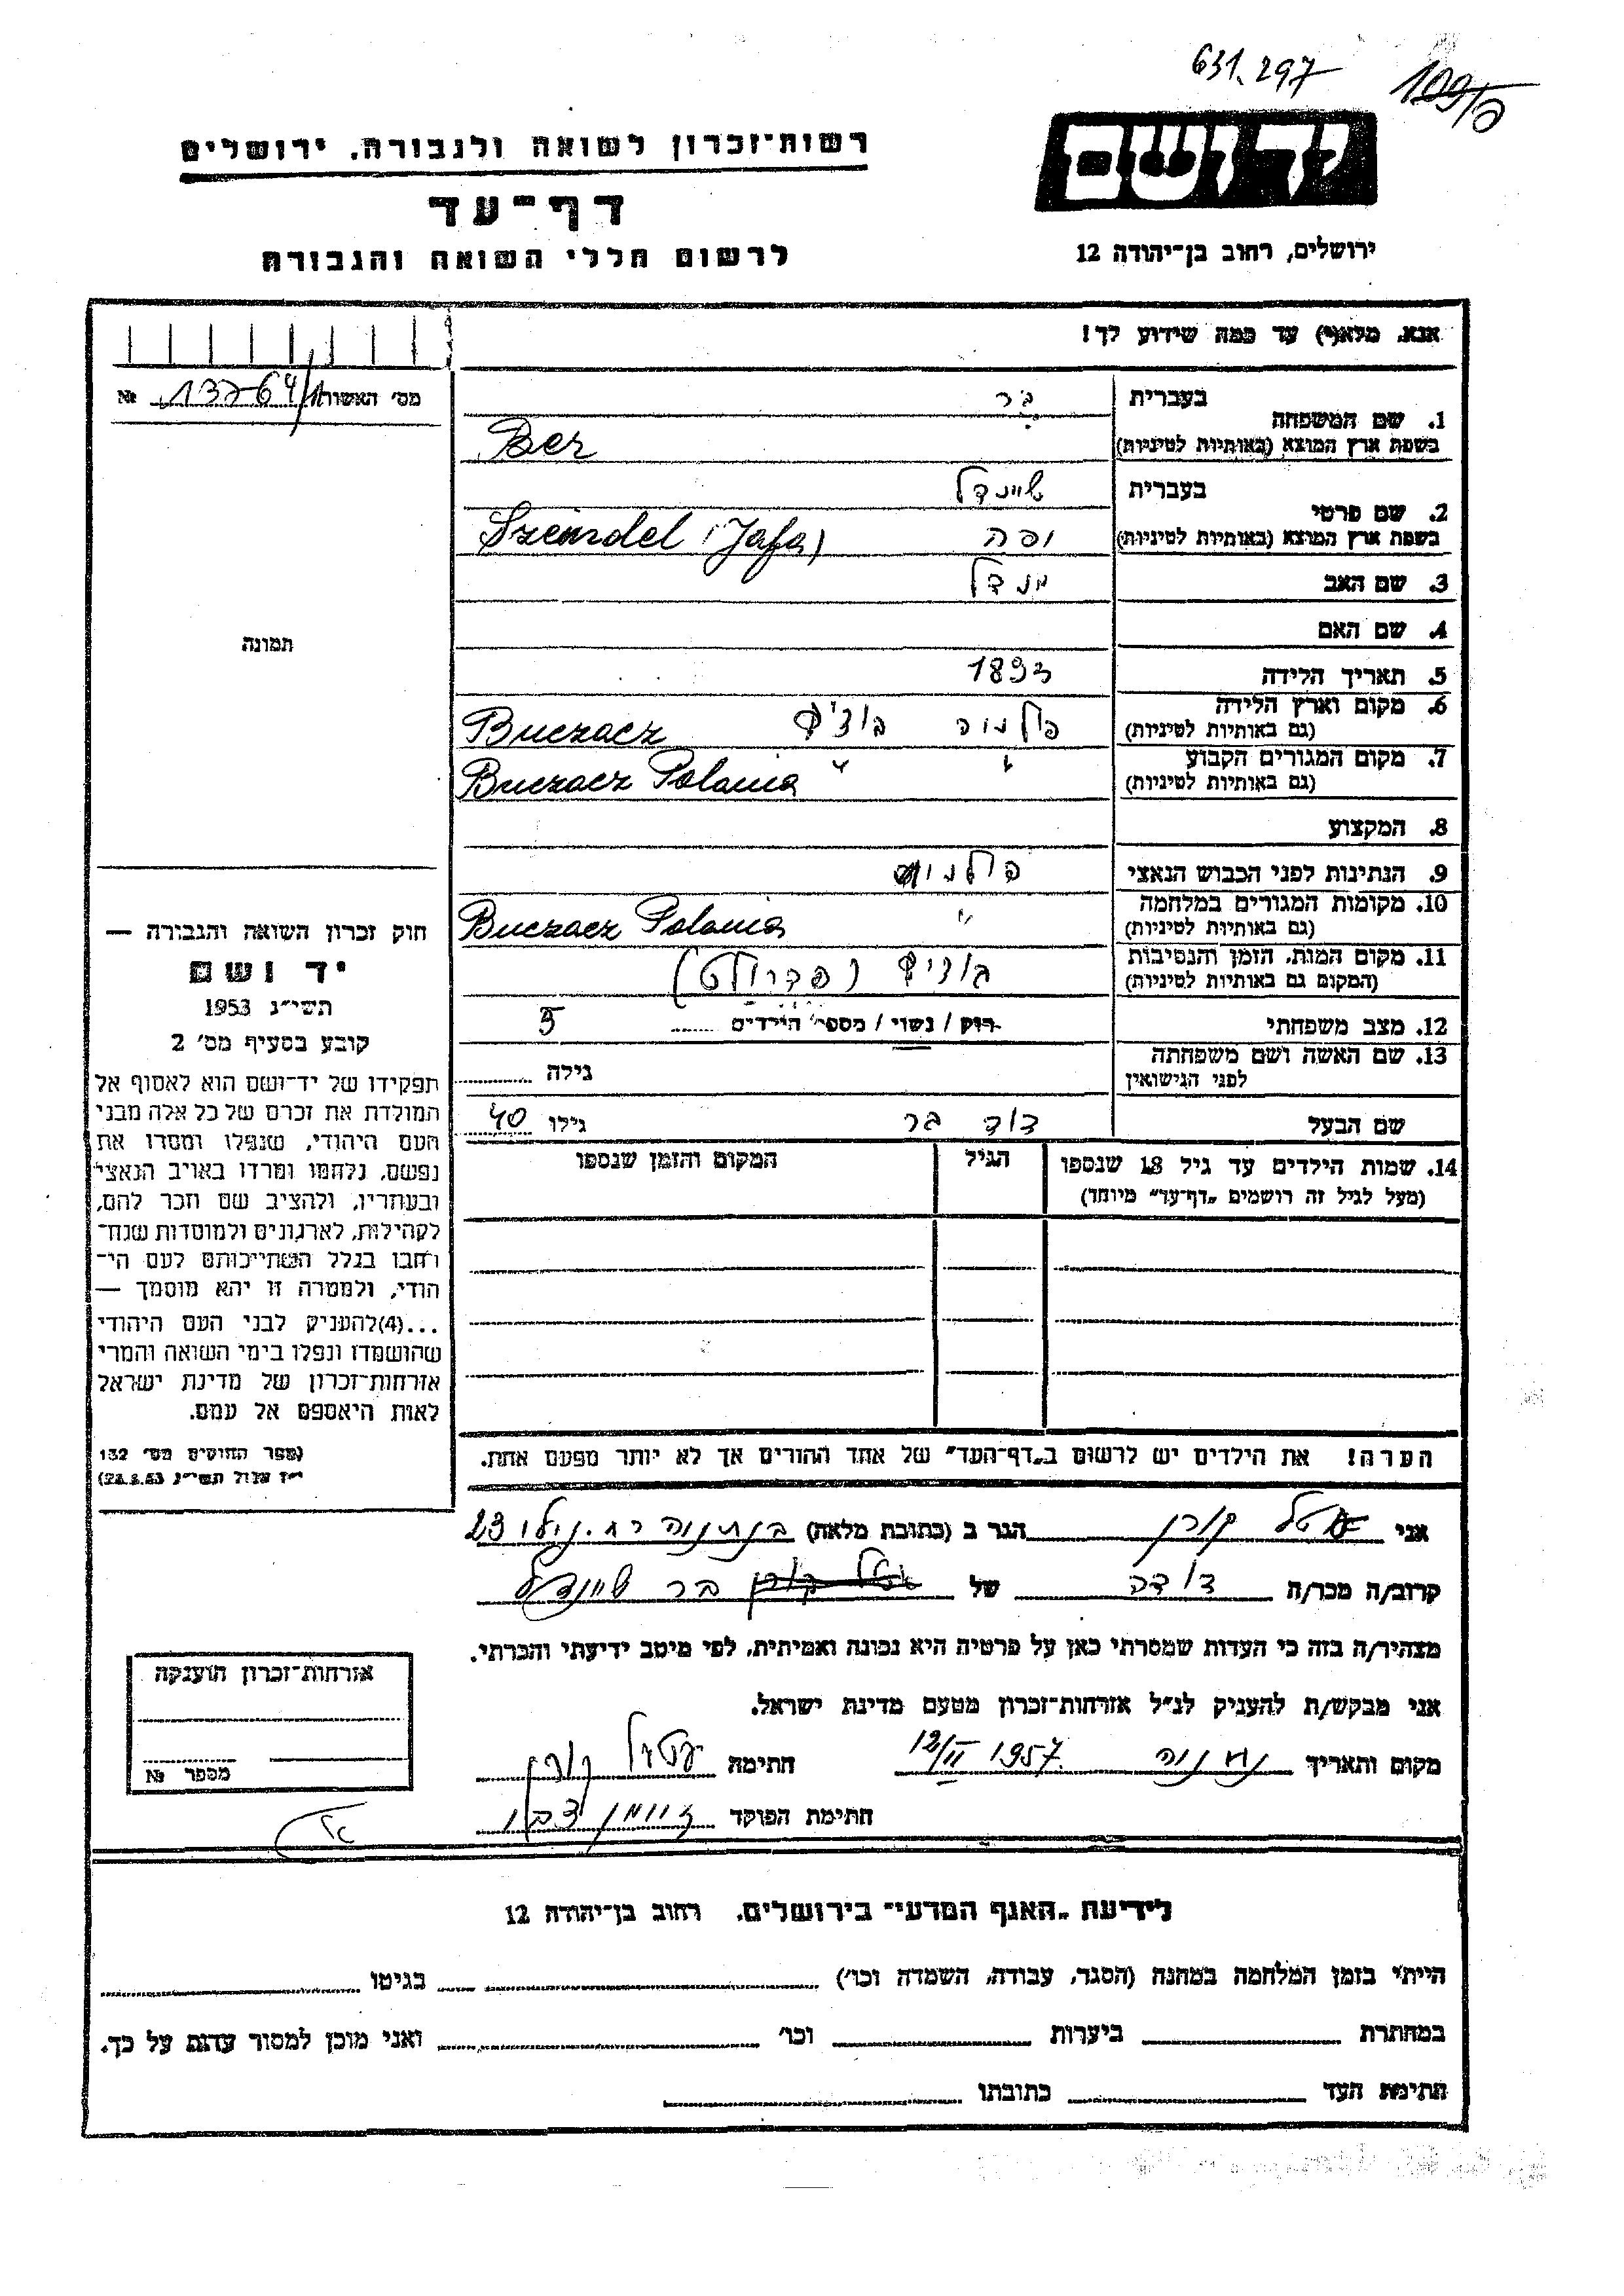 631.297
109/ס
רשות־זכרון לשואה ולגבורה. ירושלים
יד ושם
דף־עד
לרשום חללי השואה והגבורה
ירושלים, רחוב בן־יהודה 12
אנא, מלא(י) עד כמה שידוע לך!
מס' האשות № 137-64/1
בעברית בר
1. שם המשפחה
בשפת ארץ המוצא (באותיות לטיניות) Ber
בעברית שיינדל
2. שם פרטי
בשפת ארץ המוצא (באותיות לטיניות) יפה Szeindel (Jafa)
3. שם האב מנדל
4. שם האם
תמונה
5. תאריך הלידה 1893
6. מקום וארץ הלידה
(גם באותיות לטיניות) פולניה בוצ'ץ Buczacz
7. מקום המגורים הקבוע " "
(גם באותיות לטיניות) Buczacz Polania
8. המקצוע
9. הנתינות לפני הכבוש הנאצי
10. מקומות המגורים במלחמה "
(גם באותיות לטיניות) Buczacz Polania
11. מקום המות, הזמן והנסיבות
(המקום גם באותיות לטיניות)
12. מצב משפחתי רוק / נשוי / מספר הילדים ...... 5
13. שם האשה ושם משפחתה
לפני הנישואין גילה
שם הבעל דוד בר גילו 40
14. שמות הילדים עד גיל 18 שנספו הגיל המקום והזמן שנספו
(מעל לגיל זה רושמים „דף־עד" מיוחד)
חוק זכרון השואה והגבורה —
יד ושם
תשי"ג 1953
קובע בסעיף מס' 2
תפקידו של יד־ושם הוא לאסוף אל
המולדת את זכרם של כל אלה מבני
העם היהודי, שנפלו ומסרו את
נפשם, נלחמו ומרדו באויב הנאצי
ובעוזריו, ולהציב שם וזכר להם,
לקהילות, לארגונים ולמוסדות שנח־
רחבו בגלל השתייכותם לעם הי־
הודי, ולמטרה זו יהא מוסמך —
...(4)להעניק לבני העם היהודי
שהושמדו ונפלו בימי השואה והמרי
אזרחות־זכרון של מדינת ישראל
לאות היאספם אל עמם.
(ספר החוקים מס' 132
י"ז אלול תשי"ג 28.8.53)
הערה! את הילדים יש לרשום ב„דף־העד" של אחד ההורים אך לא יותר מפעם אחת.
אני קורן הגר ב (כתובת מלאה) בנתניה 23
קרוב/ה מכר/ה דודה של בר שיינדל
מצהיר/ה בזה כי העדות שמסרתי כאן על פרטיה היא נכונה ואמיתית, לפי מיטב ידיעתי והכרתי.
אני מבקש/ת להעניק לנ"ל אזרחות־זכרון מטעם מדינת ישראל.
מקום ותאריך נתניה 12/II 1957 חתימה
חתימת הפוקד
אזרחות־זכרון הוענקה
מספר №
לידיעת „האגף המדעי" בירושלים, רחוב בן־יהודה 12
הייתי בזמן המלחמה במחנה (הסגר, עבודה, השמדה וכו') בגיטו
במחתרת ביערות וכו' ואני מוכן למסור עדות על כך.
חתימת העד כתובתו